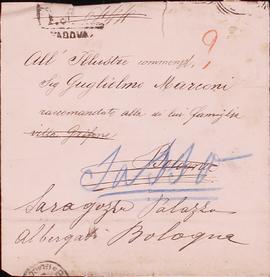 PADOVA
9
All' Illustre commend.
Sig Guglielmo Marconi
raccomandata alla di lui famiglia
villa Grifone
Bologna
Sasso
Saragozza Palazzo
Albergati Bologna